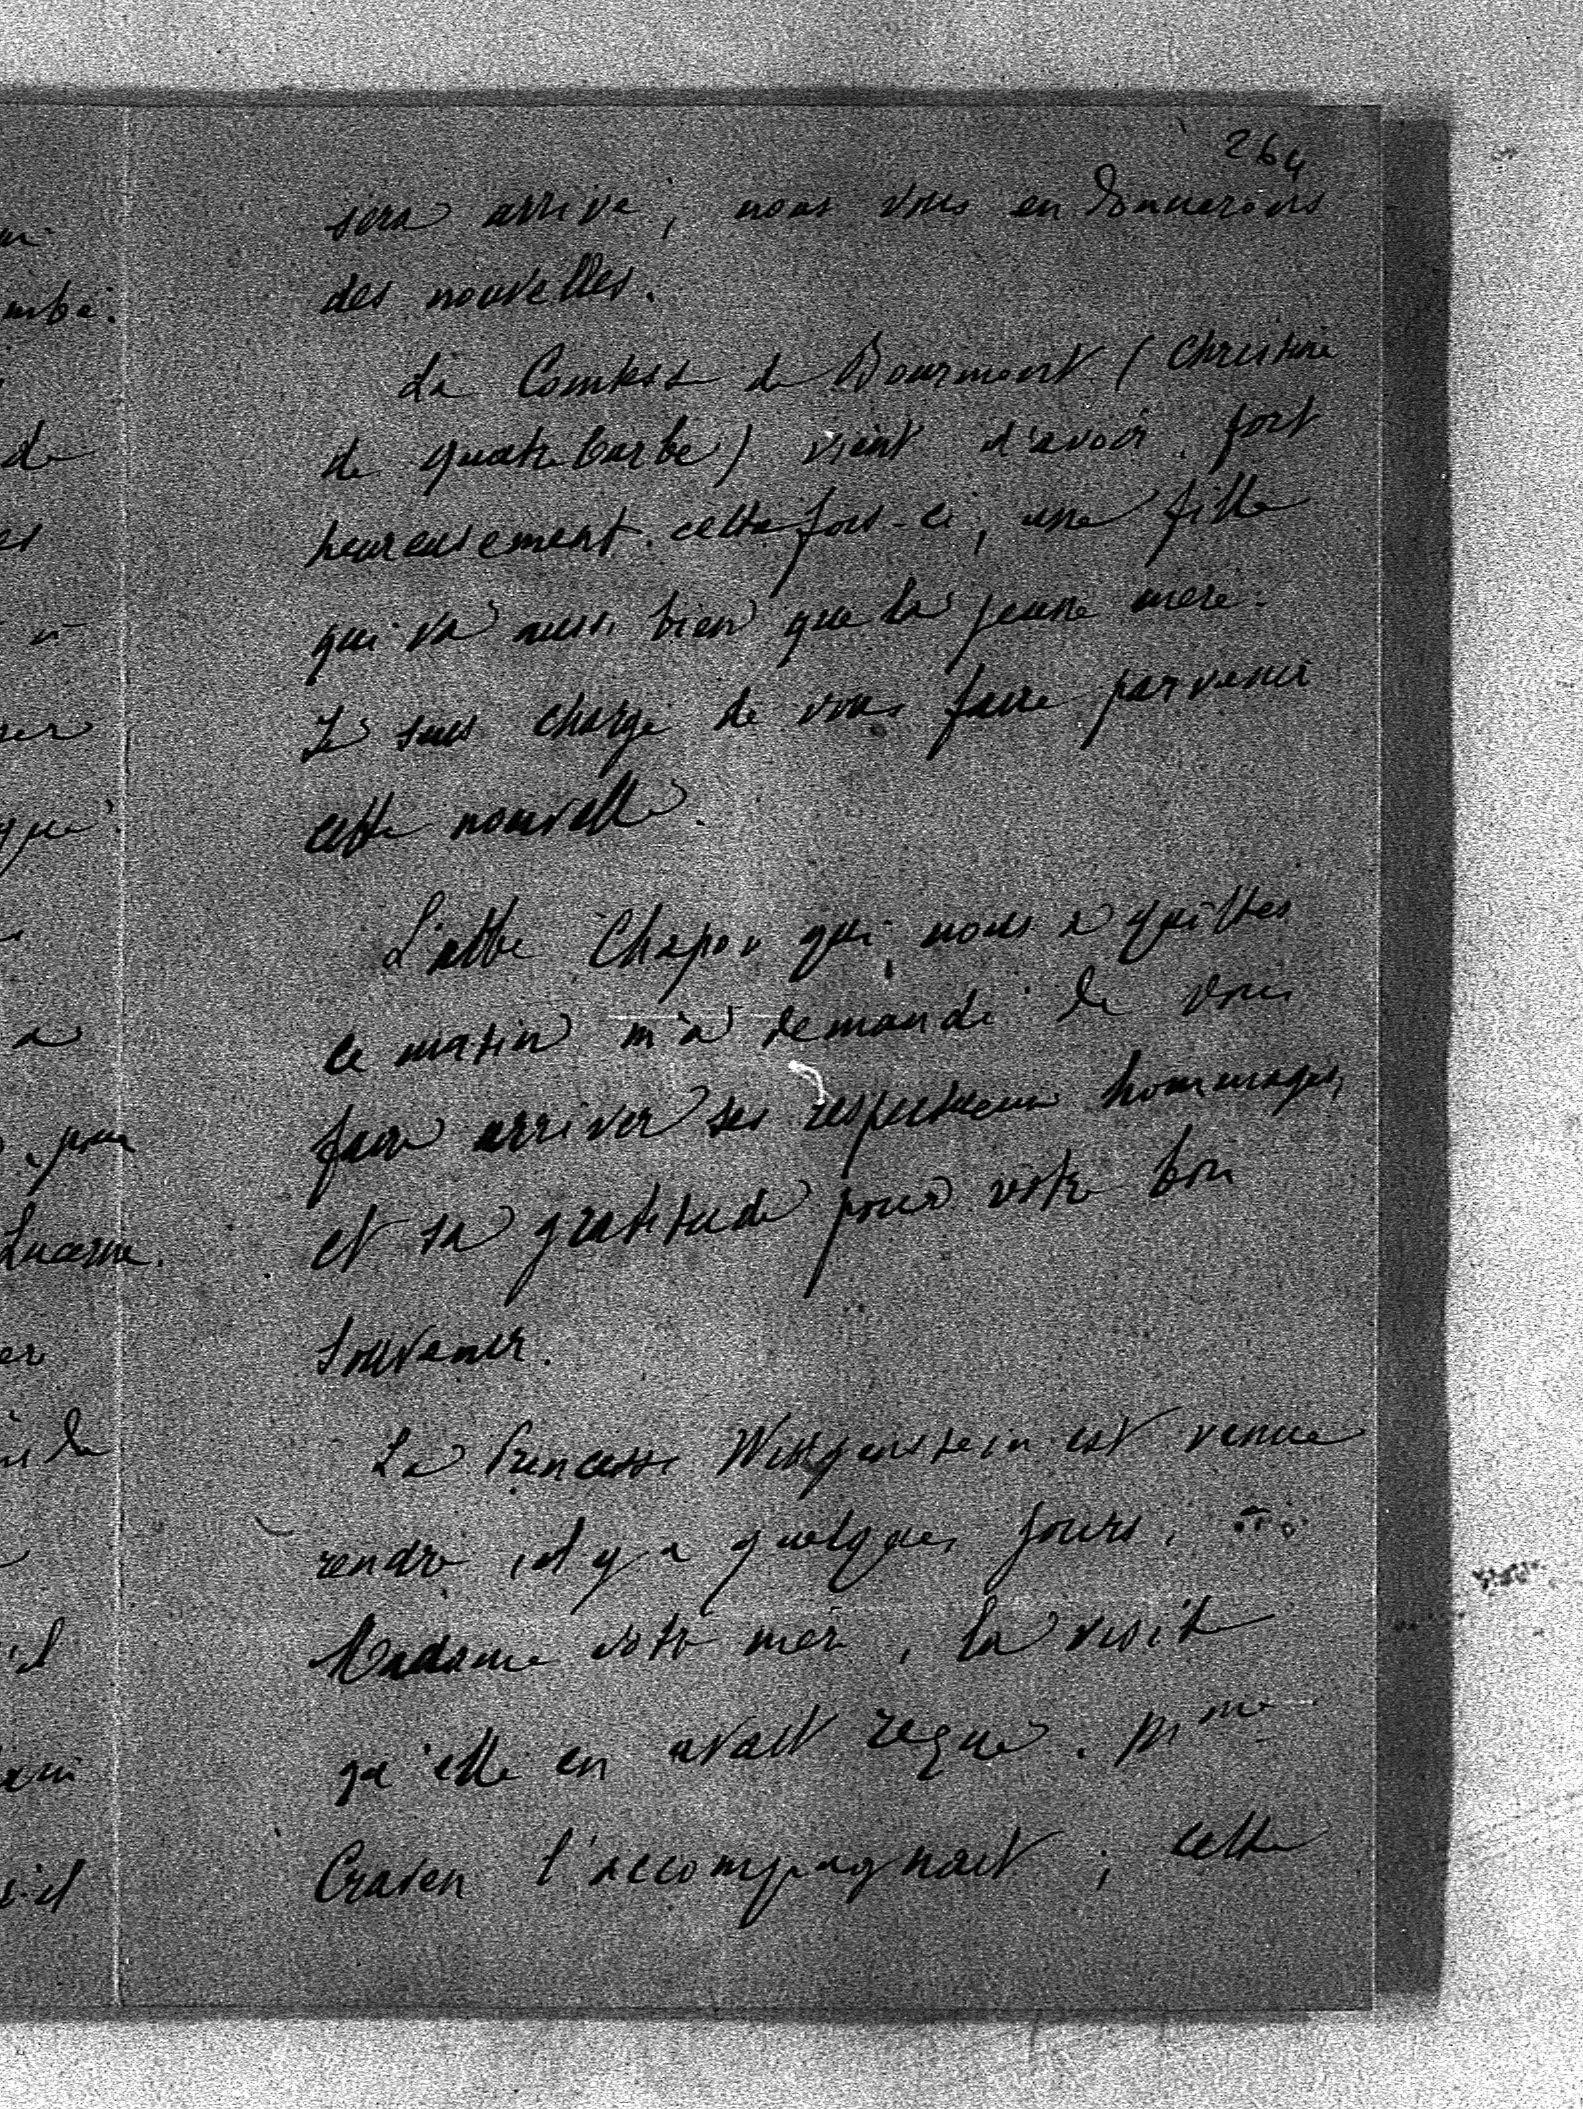 264
sera arrivé, nous vous en donnerons
des nouvelles.
La Comtesse de Bourmont (Christine
de quatrebarbe) vient d'avoir, fort
heureusement cette fois-ci, une fille
qui va aussi bien que la jeune mère.
Je suis chargé de vous faire parvenir
cette nouvelle.
L'abbé Chapon qui nous a quittés
ce matin m'a demandé de vous
faire arriver ses respectueux hommages,
et sa gratitude pour votre bon
souvenir.
La Princesse Wittgenstein est venue
rendre, il y a quelques jours, à
Madame votre mère, la visite
qu'elle en avait reçue. Mme
Craven l'accompagnait ; cette
de
er
que
a
pour
Lucerne.
er
de
il